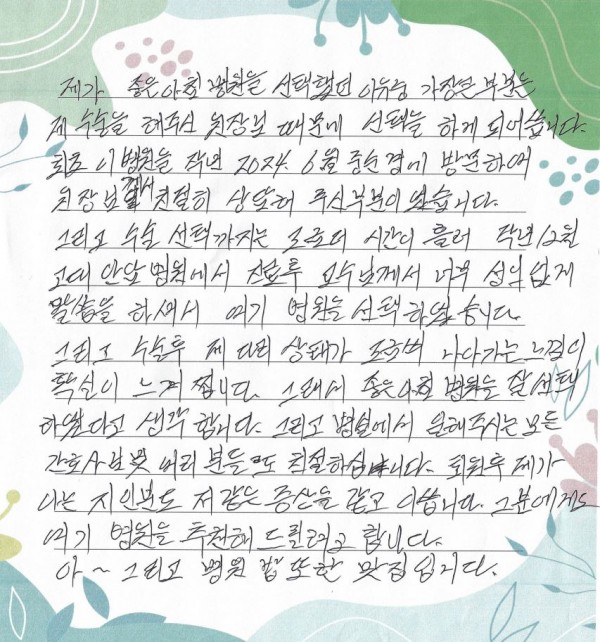 제가 좋은아침 병원을 선택했던 이유중 가장큰 부분은
제 수술을 해주신 원장님 때문에 선택을 하게 되어습니다.
최초 이병원을 작년 2024. 6월 중순경에 방문하여
원장님께서 친절히 상담해 주신부분이 있습니다.
그리고 수술 선택까지는 모로며 시간이 흘러 작년 12월
고대 안암 병원에서 진료후 교수님께서 너무 성의 없게
말씀을 하셔서 여기 병원을 선택 하였습니다.
그리고 수술후 제 다리 상태가 조금씩 나아가는 느낌이
확실이 느껴 집니다. 그래서 좋은아침 병원을 잘 선택
하였다고 생각 합니다. 그리고 병실에서 일해주시는 모든
간호사님 및 여러 분들 또 친절하십니다. 퇴원후 제가
아는 지인분도 저 같은 증상을 갖고 이습니다. 그분에게도
여기 병원을 추천해 드릴려고 합니다.
아 ~ 그리고 병원 밥 또한 맛집 입니다.